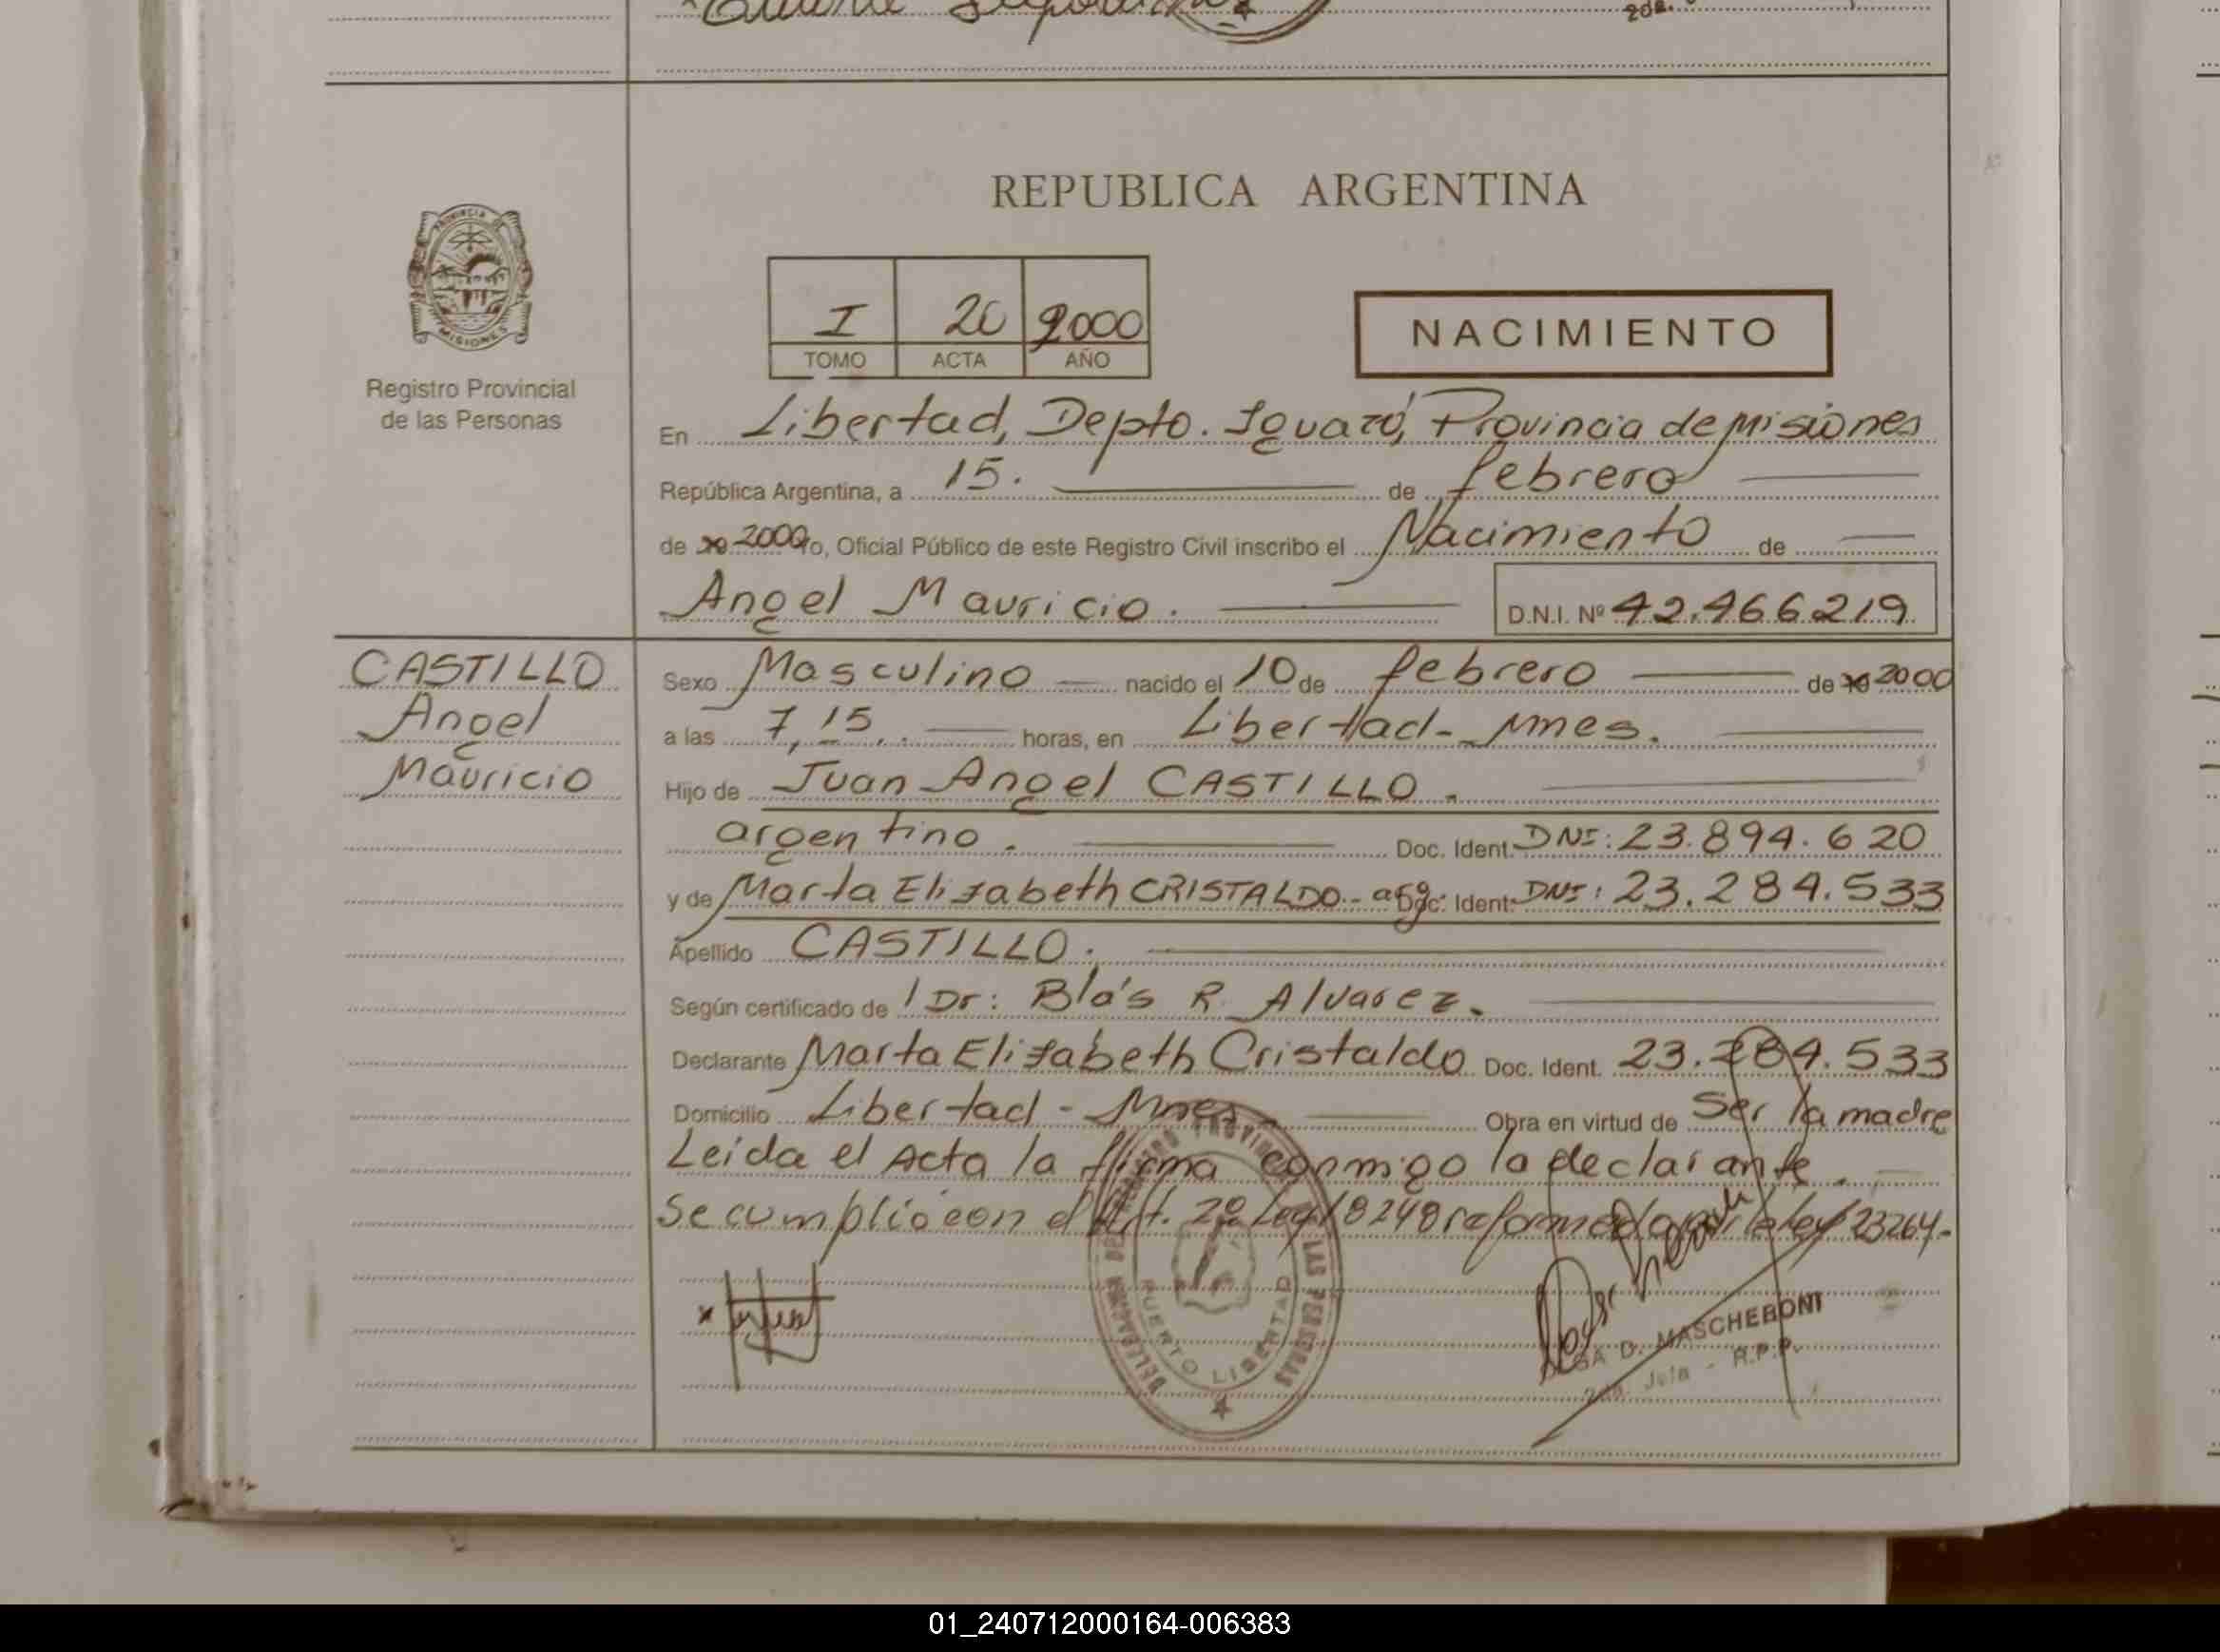 2da.
REPUBLICA ARGENTINA
PROVINCIA DE
MISIONES
Registro Provincial
de las Personas
I 20 2000
TOMO ACTA AÑO
NACIMIENTO
En Libertad, Depto. Iguazú, Provincia de Misiones
República Argentina, a 15. de febrero
de 19 2000 Yo, Oficial Público de este Registro Civil inscribo el Nacimiento de
Angel Mauricio. D.N.I. Nº 42.466219
CASTILLO
Angel
Mauricio
Sexo Masculino nacido el 10 de febrero de 19 2000
a las 7,15. horas, en Libertad - Mnes.
Hijo de Juan Angel CASTILLO.
argentino. Doc. Ident. DNI: 23.894.620
y de Marta Elizabeth CRISTALDO.- arg. Doc. Ident. DNI: 23.284.533
Apellido CASTILLO.
Según certificado de 1 Dr: Blás R. Alvarez.
Declarante Marta Elizabeth Cristaldo Doc. Ident. 23.284.533
Domicilio Libertad - Mnes. Obra en virtud de Ser la madre
Leída el Acta la firma conmigo la declarante.
Se cumplió con el Art. 2º Ley 18248 reformada por la ley 23264.-
DELEGACION DEL REGISTRO PROVINCIAL DE LAS PERSONAS
PUERTO LIBERTAD
OLGA D. MASCHERONI
2da. Jefa - R.P.P.
01_240712000164-006383